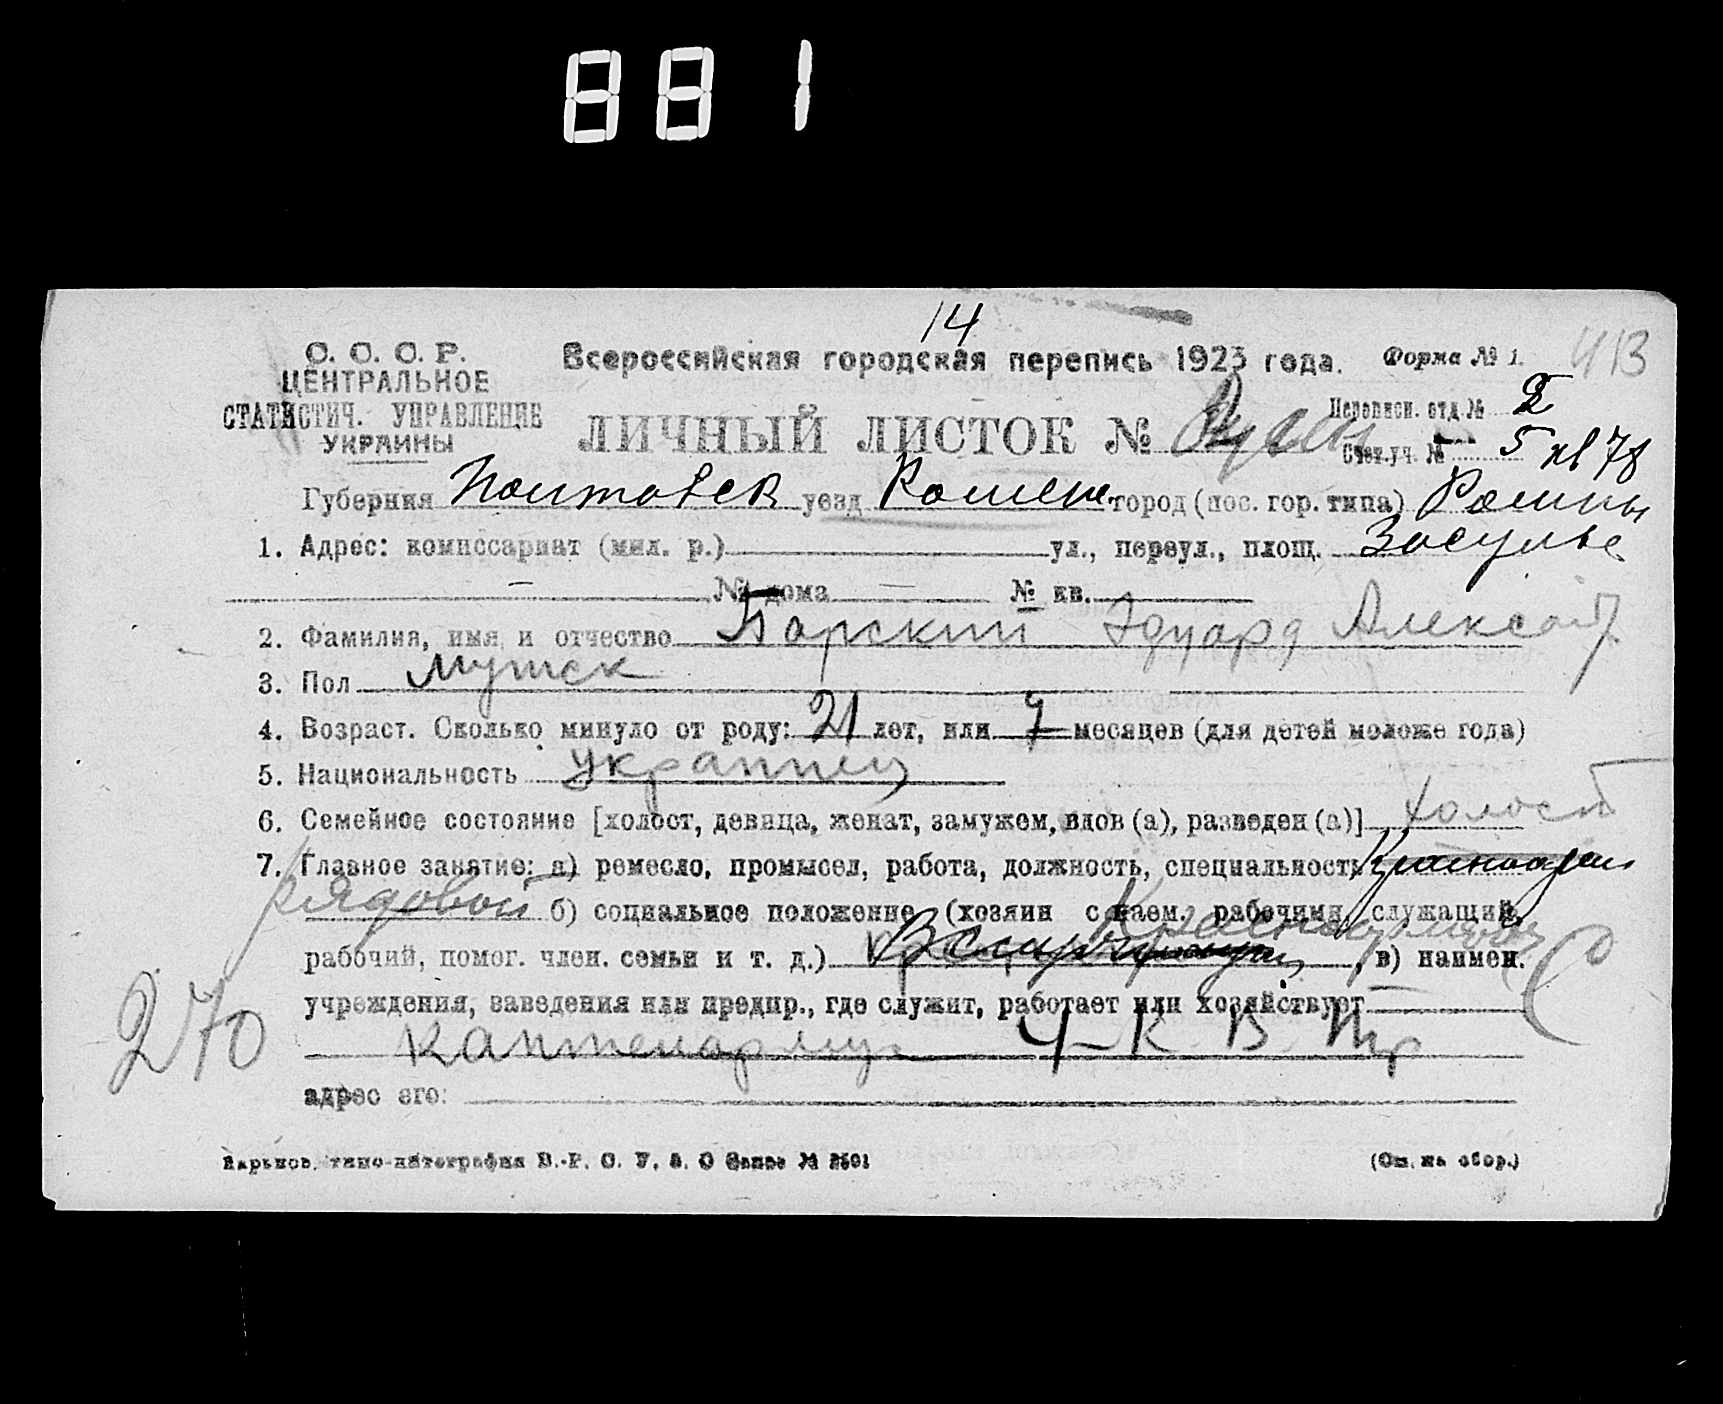 881
14
С. С. С. Р.
ЦЕНТРАЛЬНОЕ
СТАТИСТИЧ. УПРАВЛЕНИЕ
УКРАИНЫ
Всероссийская городская перепись 1923 года.
Форма № 1.
413
ЛИЧНЫЙ ЛИСТОК №
Переписн. отд. № 2
Счет. уч. № 5 кв 78
Губерния Полтавск уезд Роменс. город (пос. гор. типа) Ромны
1. Адрес: комиссариат (мил. р.) ул., переул., площ. Засулье
— № дома — № кв.
2. Фамилия, имя и отчество Барский Эдуард Александ
3. Пол мужск
4. Возраст. Сколько минуло от роду: 21 лет, или 9 месяцев (для детей моложе года)
5. Национальность украинец
6. Семейное состояние [холост, девица, женат, замужем, вдов (а), разведен (а)] холост
7. Главное занятие: а) ремесло, промысел, работа, должность, специальность Красноарм
рядовой б) социальное положение (хозяин с наем. рабочими, служащий,
рабочий, помог. член. семьи и т. д.) Красноармеец, в) наимен.
учреждения, заведения или предпр., где служит, работает или хозяйствует
270
адрес его:
Харьков, типо-литография В.-Р. С. У. З. О Заказ №
(См. на обор.)